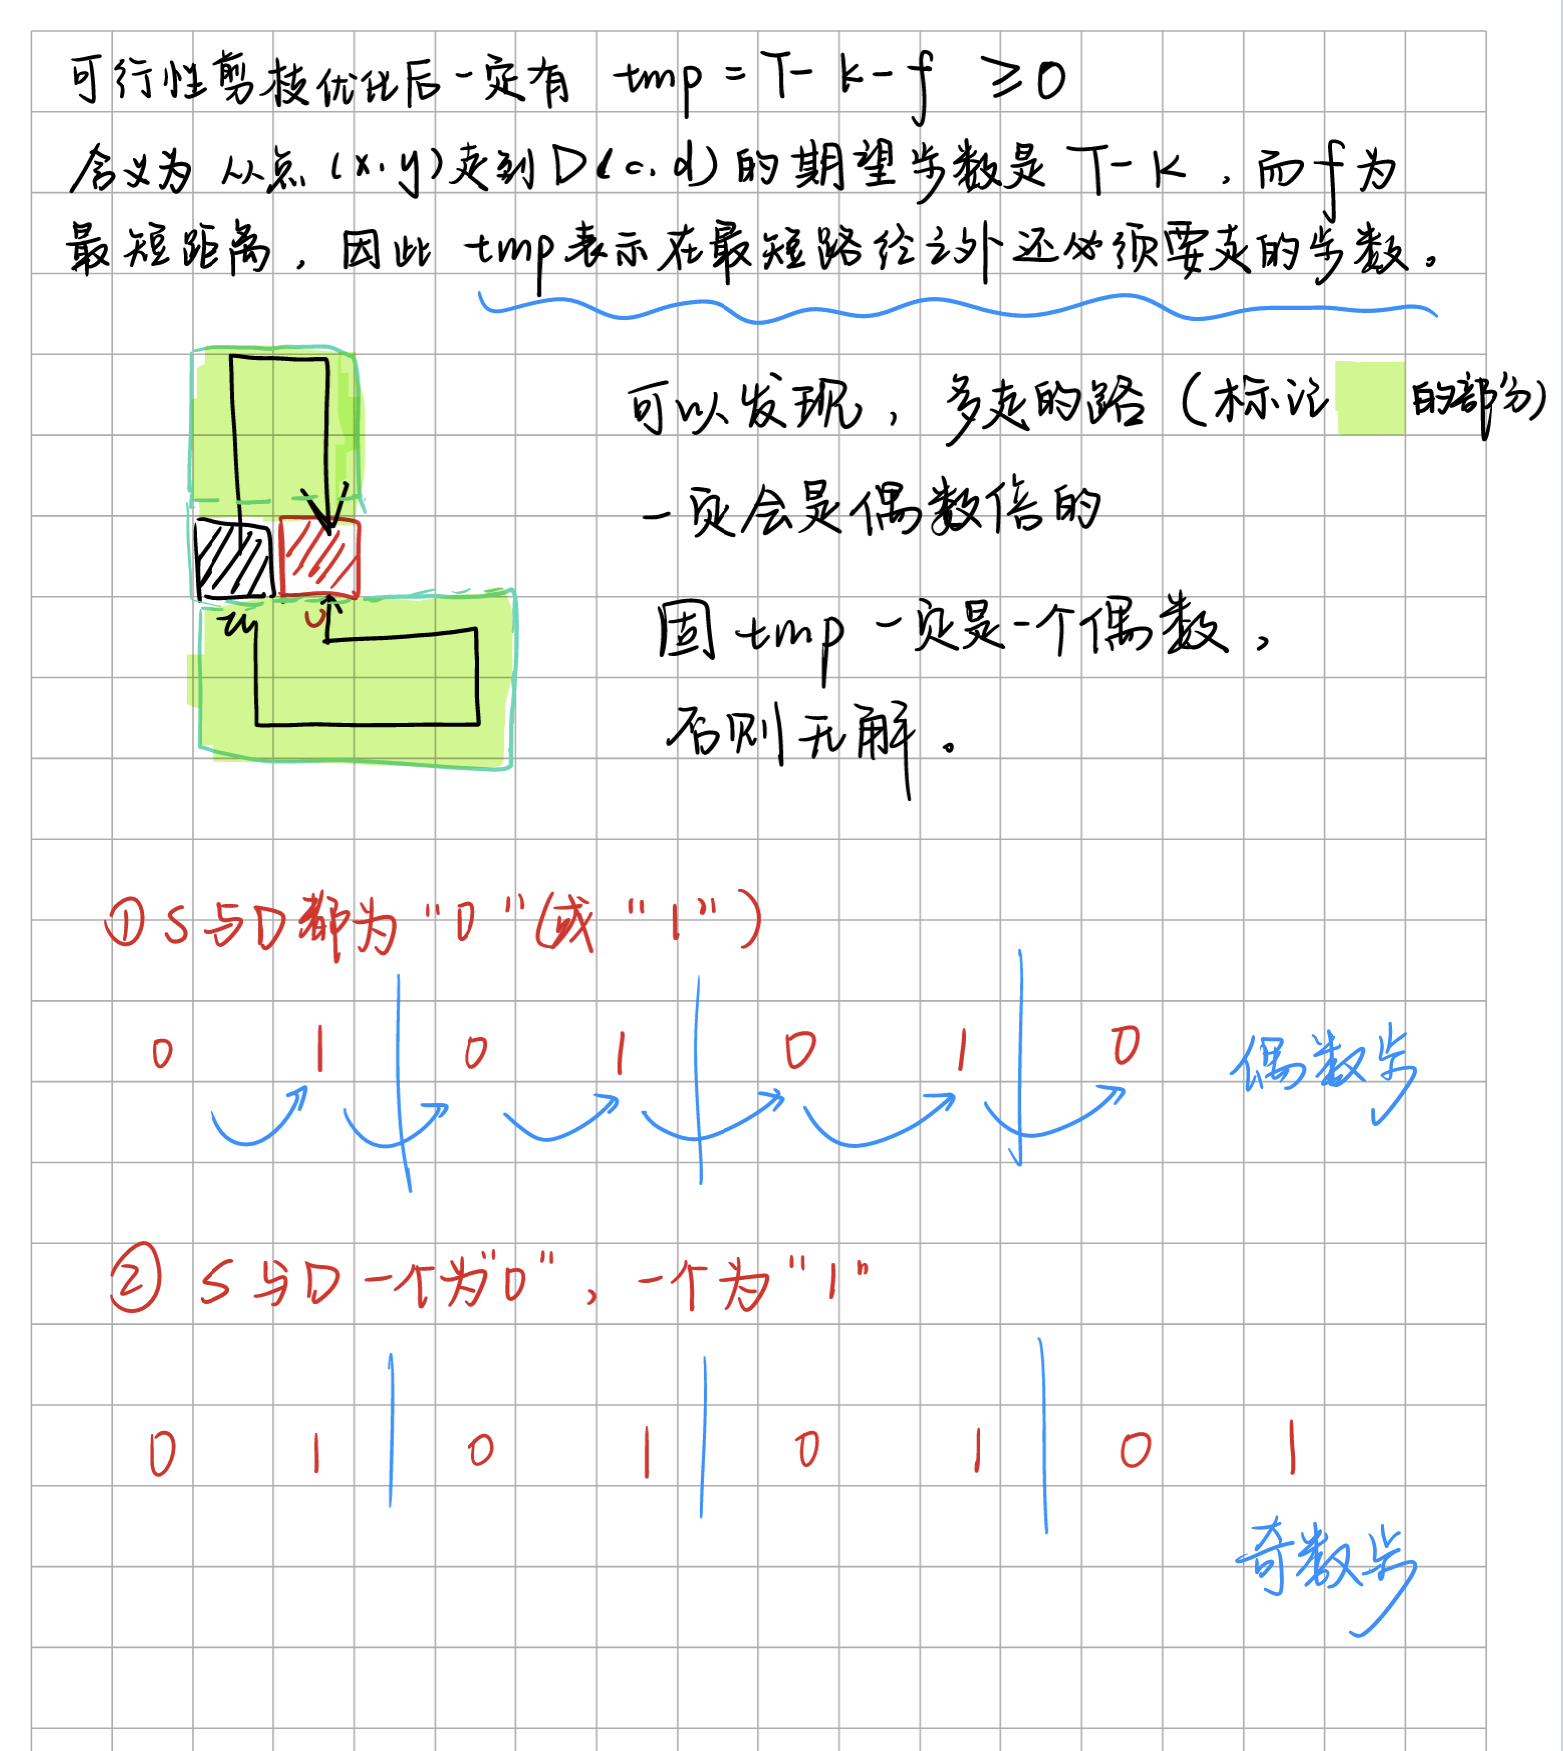 可行性剪枝优化后一定有 tmp = T - k - f ≥ 0
含义为 从点 (x,y) 走到 D(c,d) 的期望步数是 T - K，而 f 为
最短距离，因此 tmp 表示在最短路径之外还必须要走的步数。
可以发现，多走的路（标记 的部分）
一定会是偶数倍的
固 tmp 一定是一个偶数，
否则无解。
① S与D都为“0”(或“1”)
0 1 0 1 0 1 0 偶数步
② S与D一个为“0”，一个为“1”
0 1 0 1 0 1 0 1
奇数步